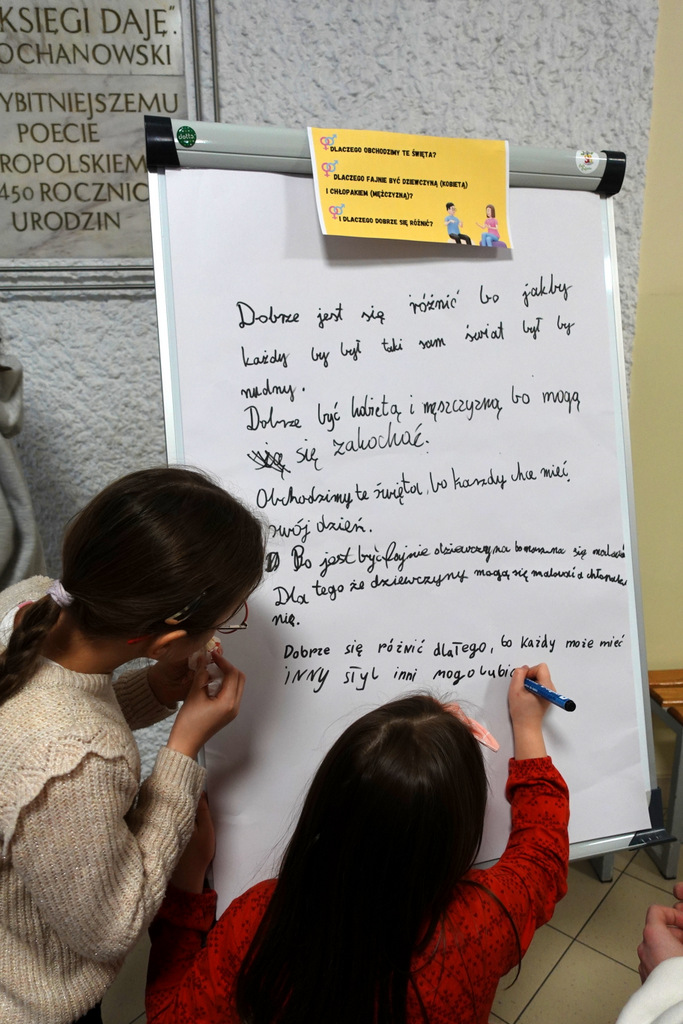 KSIĘGI DAJĘ".
OCHANOWSKI
YBITNIEJSZEMU
POECIE
ROPOLSKIEM
450 ROCZNIC
URODZIN
DLACZEGO OBCHODZIMY TE ŚWIĘTA?
DLACZEGO FAJNIE BYĆ DZIEWCZYNĄ (KOBIETĄ)
I CHŁOPAKIEM (MĘŻCZYZNĄ)?
I DLACZEGO DOBRZE SIĘ RÓŻNIĆ?
Dobrze jest się różnić bo jakby
każdy by był taki sam świat był by
nudny.
Dobrze być kobietą i męszczyzną bo mogą
się zakochać.
Obchodzimy te święta, bo każdy chce mieć
swój dzień.
Bo jest być fajnie dziewczyna bo można się malować
Dla tego że dziewczyny mogą się malować a chłopaki
nie.
Dobrze się różnić dlatego, bo każdy może mieć
inny styl inni mogą lubić